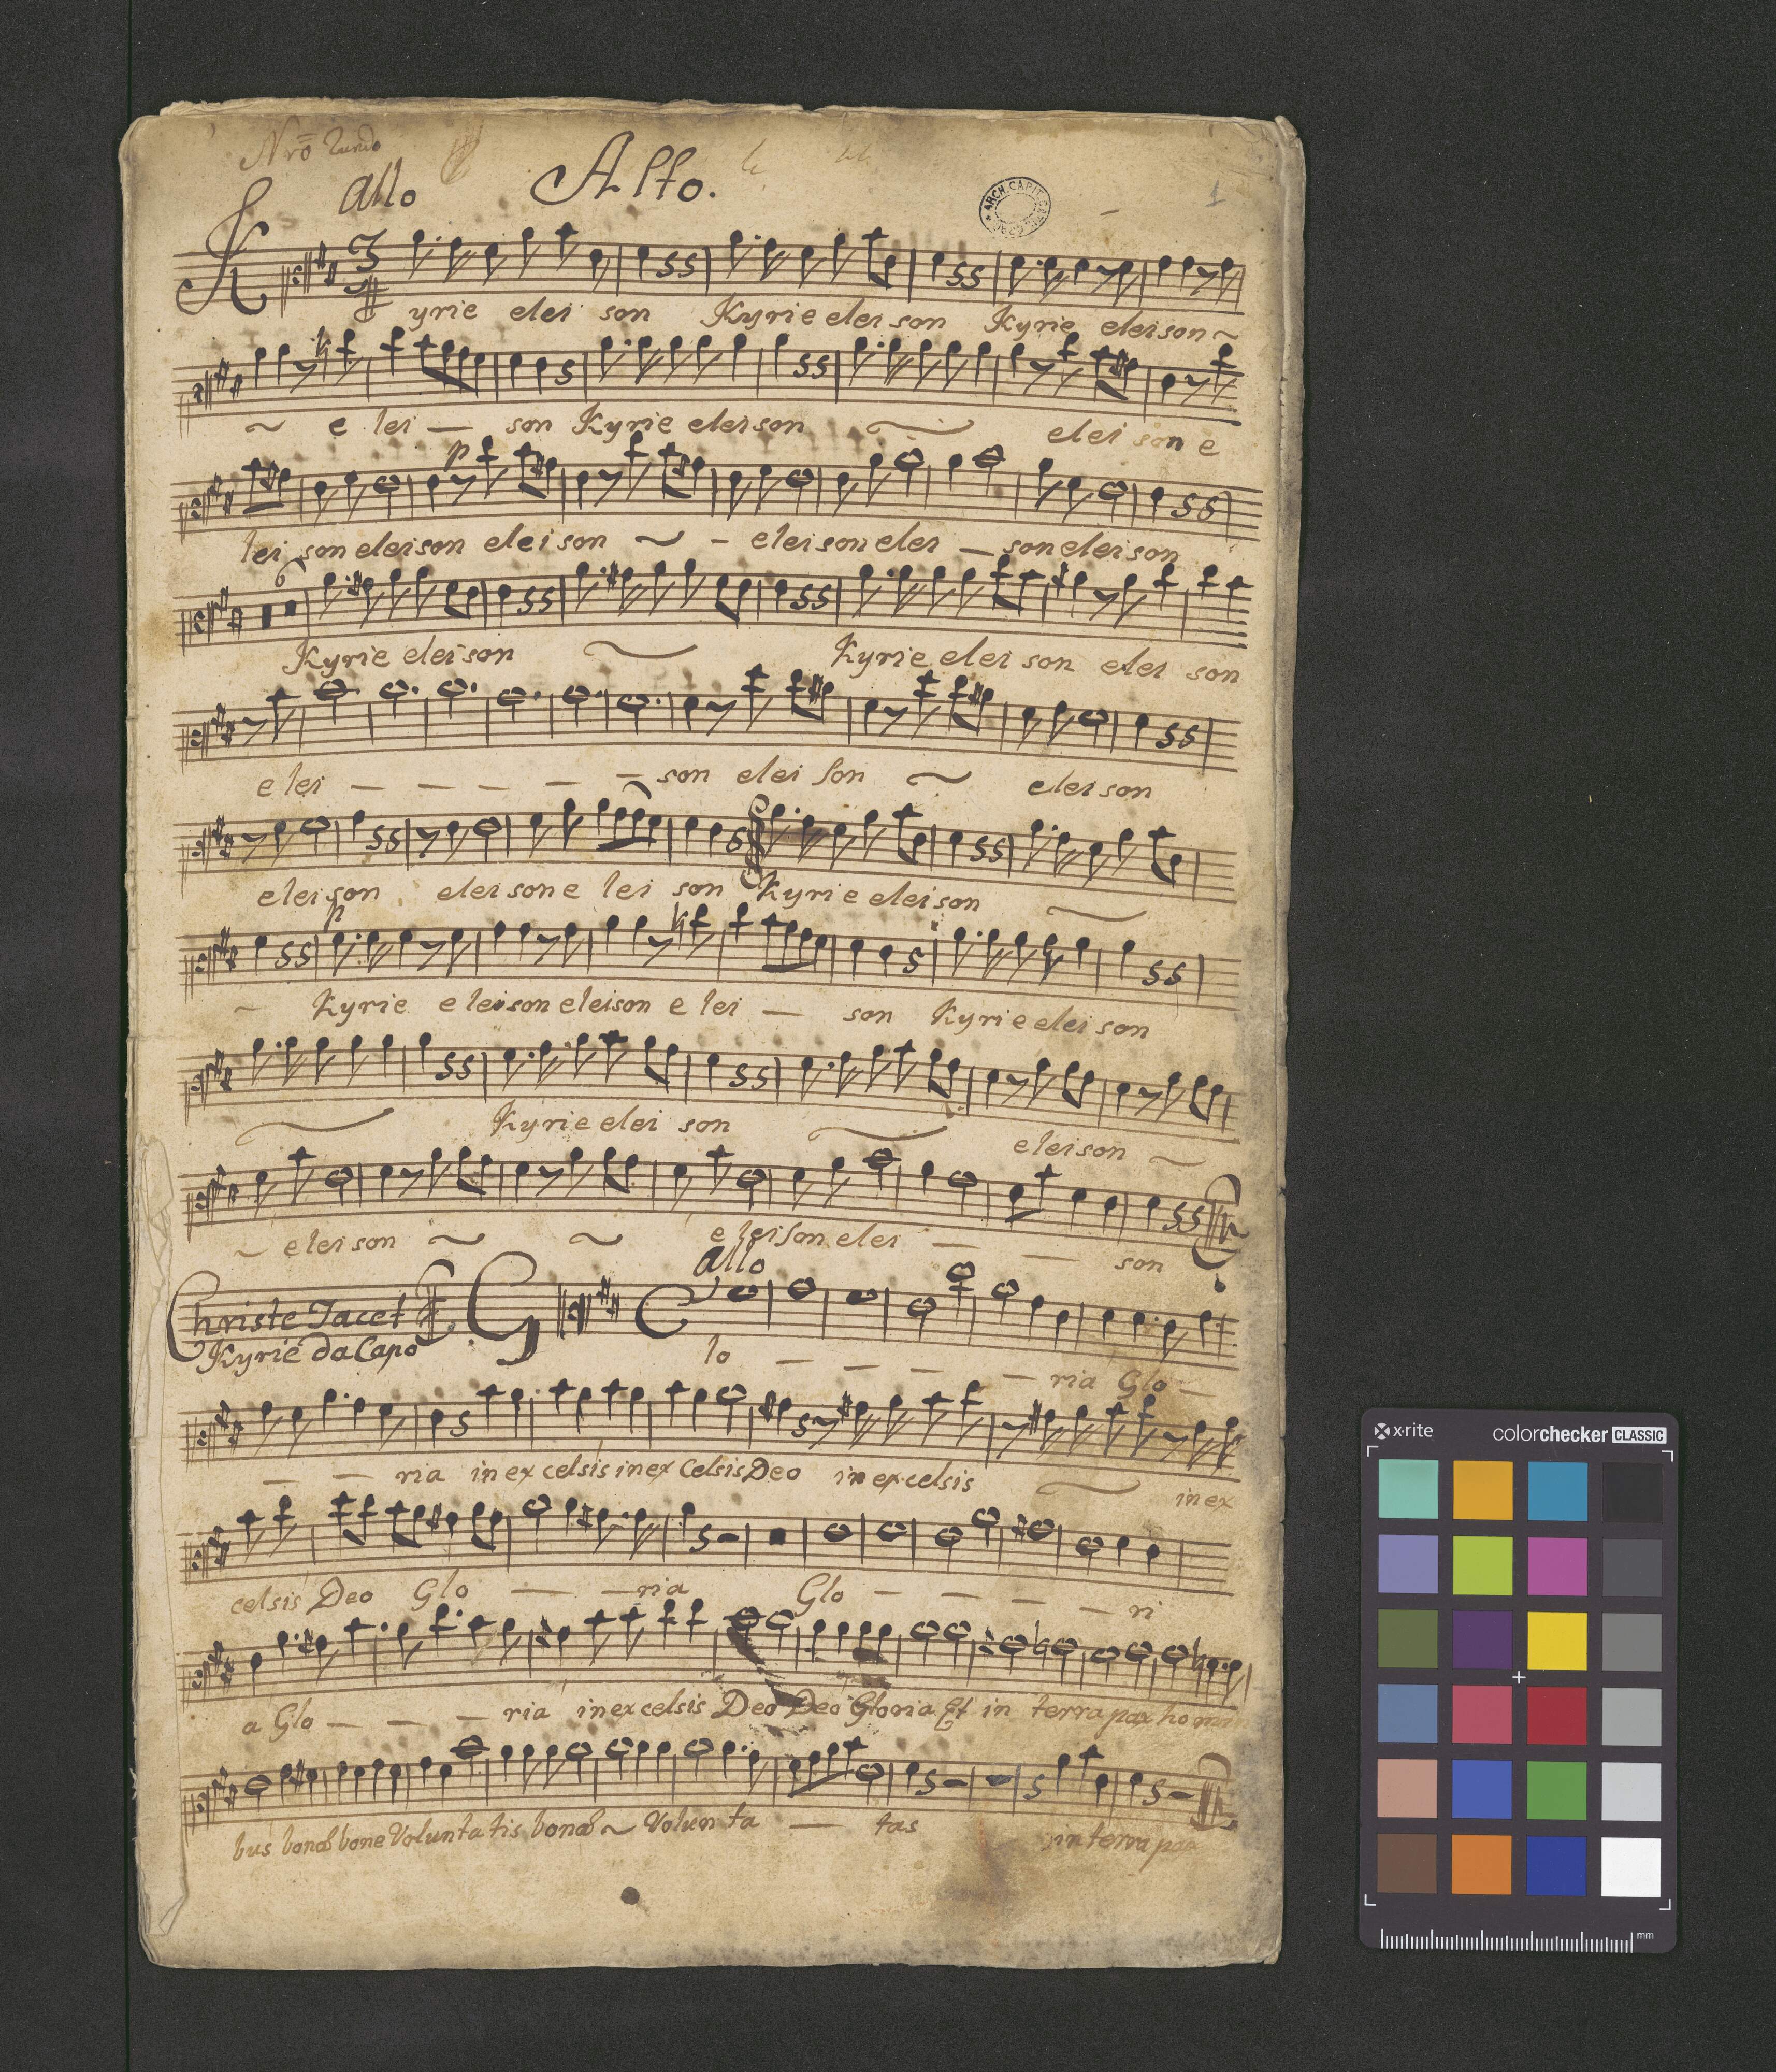 Nrō
allo Alto.
1
ARCH. CAPIT.
K 3
yrie elei son Kyrie elei son Kyrie eleison ~
~ e lei — son Kyrie eleison ~ elei son e
p
lei son eleison elei son ~ - eleison elei — son eleison
6
Kyrie eleison ~ Kyrie elei son elei son
e lei — — — — — son elei son ~ elei son
elei son elei son e lei son Kyrie eleison
p
~
- Kyrie e leison eleison e lei — son Kyrie elei son
~ Kyrie elei son ~ eleison ~
~ elei son ~ ~ e lei son elei — — son
allo
Christe Tacet G C
Kyrie da Capo lo — — — — ria Glo —
— — ria in ex celsis in ex Celsis Deo in ex celsis ~ in ex
celsis Deo Glo — — ria Glo — — — — ri
a Glo — — — ria in ex celsis Deo Deo Gloria Et in terra pax homin
bus bonæ bone Voluntatis bonæ ~ Volun ta — tas in terra pax
x-rite colorchecker CLASSIC
mm